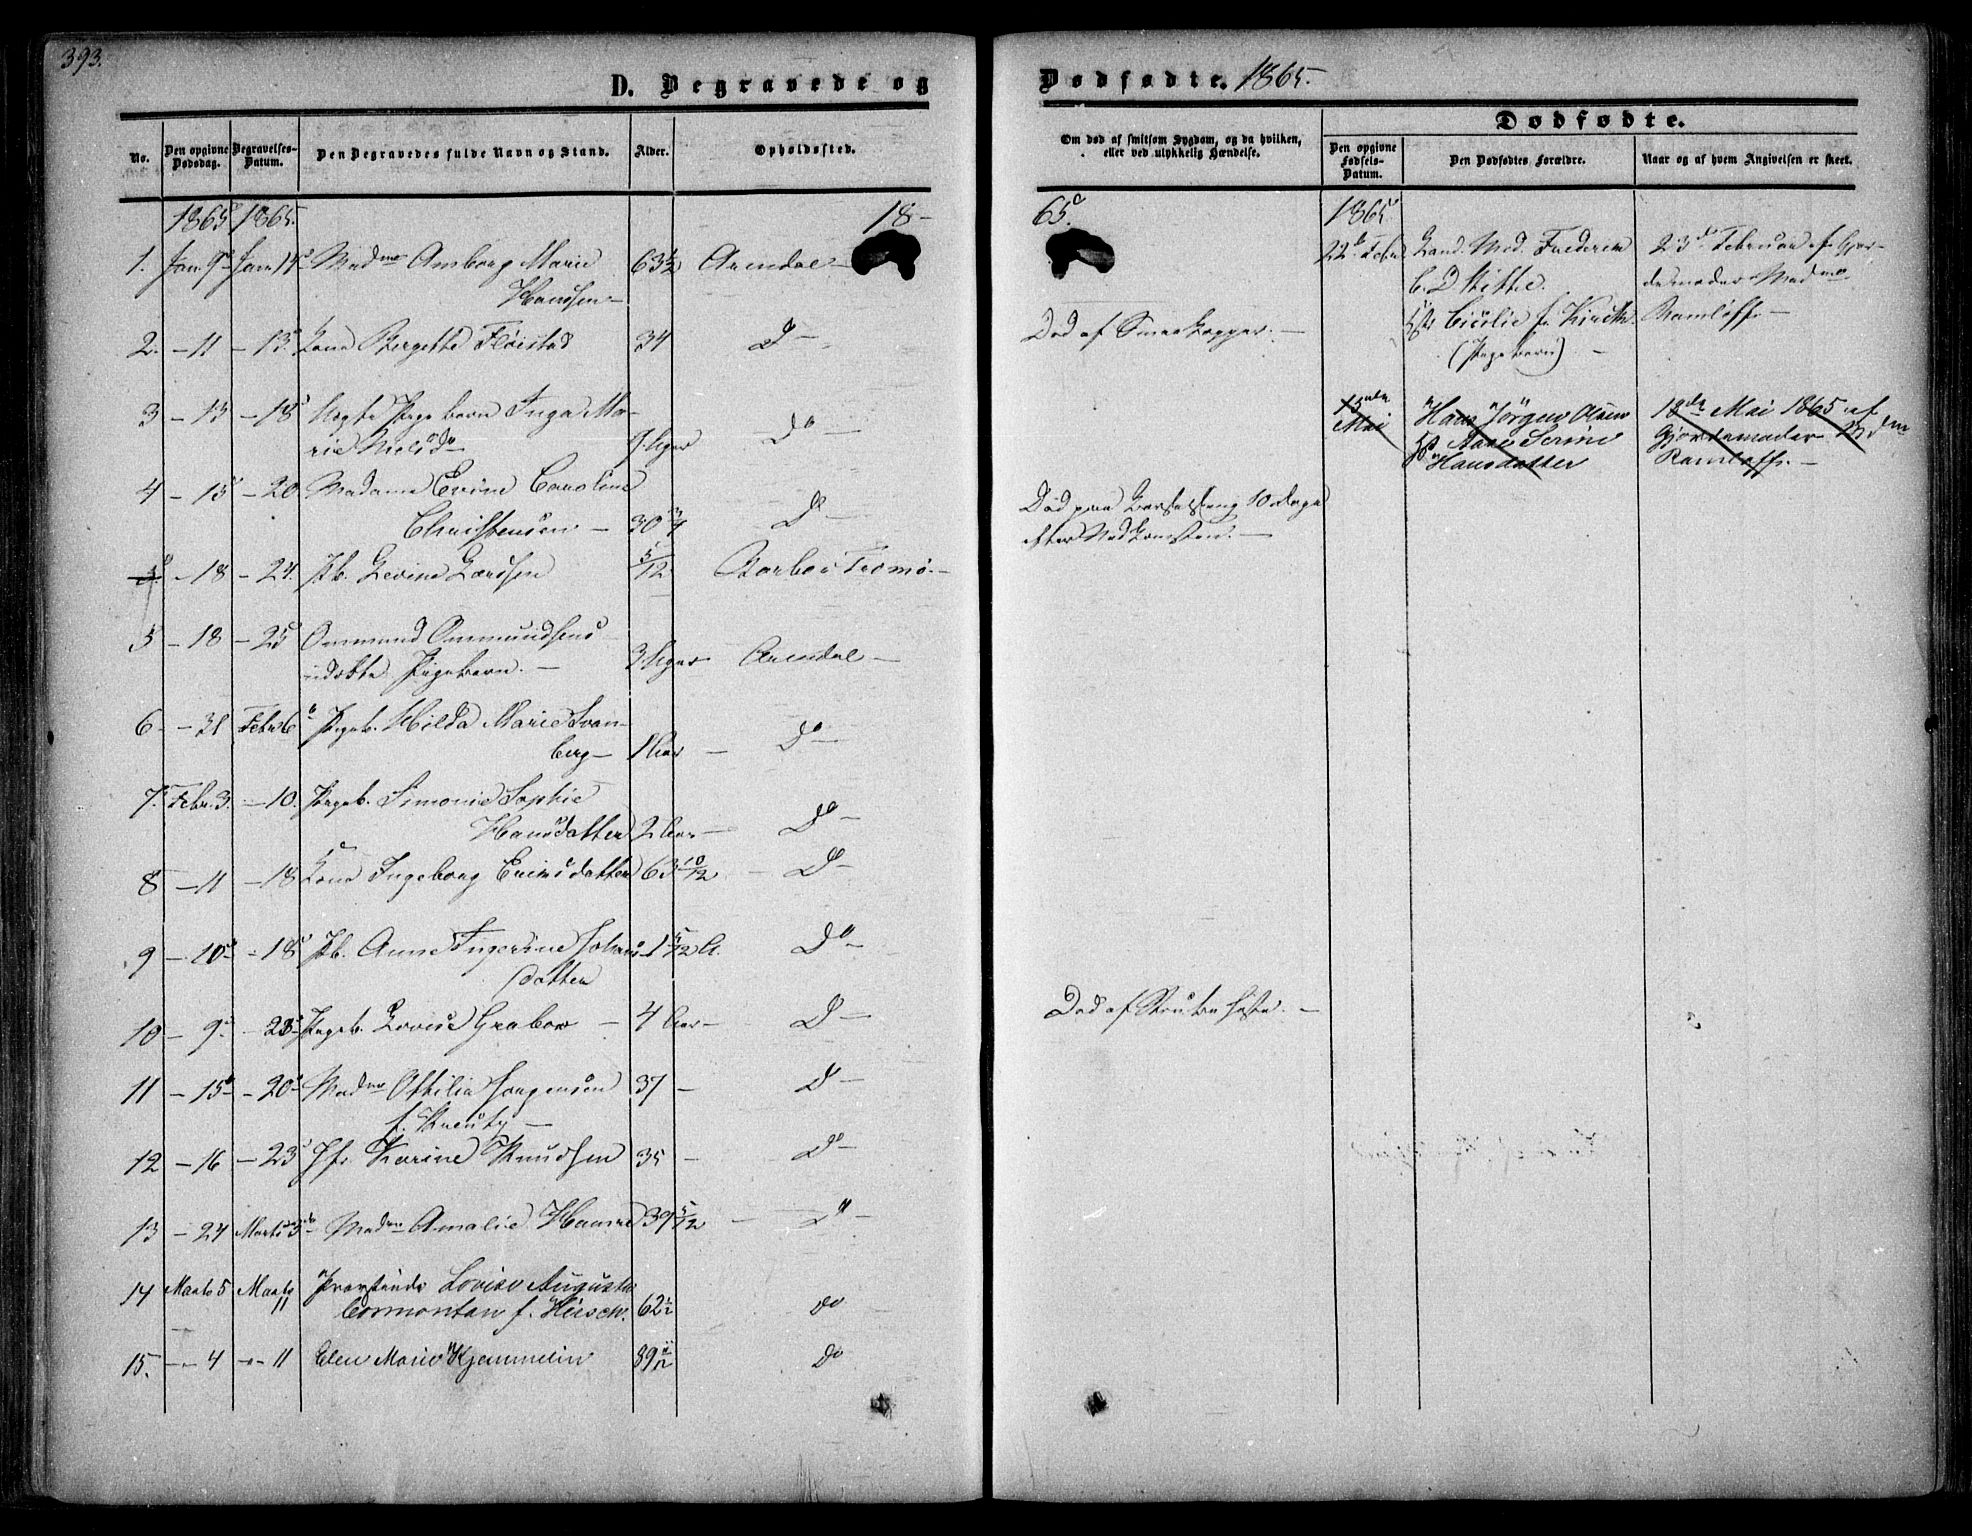 393.
D. Begravede og
No.
Den opgivne Dødsdag.
Begravelses-Datum.
Den Begravedes fulde Navn og Stand.
Alder.
Opholdssted.
1865. 1865. 18-
1. Jan. 9 Jan. 14 Madme Amborg Marie 63½ Arendal
Hansen
2. - 11 - 13 Kone Bergette Fløistad 34 Do
3 - 13 - 18 Ægte Pigebarn Inga Ma-
rie 9 Uger Do
4 - 15 - 20 Madame Evine Caroline
Christensen 30¾ Do
5. - 18 - 24. Pb. Levine Larssen 5/12 Barbo Tromø.
5 - 18 - 25 Ommund Ommundsens
udøbte Pigebarn. 3 Uger Arendal
6. - 31 Febr 6 Pigeb. Hilda Marie Svan-
berg 1 Aar Do
7. Febr. 3. - 10. Pigeb. Simonie Sophie
Hansdatter 2 Aar Do
8 - 11 - 18 Kone Ingeborg 63 10/12 Do
9 - 10 - 18 Pb. Anne Ingerine Johans 1 5/12 A. Do
datter
10 - 9 Pigeb. Lovise Grabow 4 Aar Do
11 - 15 - 20 Madme Othilia Jørgensen 37 Do
f.
12 - 16 - 23 Jfr. Karine Knudsen 35 Do
13 - 24 Marts 3 Madme Amalie 39 5/12 Do
14 Marts 5 Marts Provstinde Lovise Augusta
11 Cormontan f. 62½ do
15. - 4 - 11 Elen Marie Kjemmelin 89 11/12 Do
Dødfødte. 1865.
Om død af smitsom Sygdom, og da hvilken,
eller ved ulykkelig Hændelse.
Dødfødte.
Den opgivne Fødsels-Datum.
Den Dødfødtes Forældre.
Naar og af hvem Angivelsen er skeet.
65. 1865
22 Febr Cand. Med. Frederik 23de Februar af Gjor-
C. D Kitte. demoder Madme
Hstr Cicilie f. Kirch. Ramløff.
(Pigebarn)
Død af Smaakopper.
15de Hans Jørgen Olsen 18de Mai 1865 af
Mai Hst Aase Serine Gjordemoder Mdm
Hansdatter Ramløff.
Død paa Barselseng 10 Dage
efter Nedkomsten.
Død af Strubehoste.